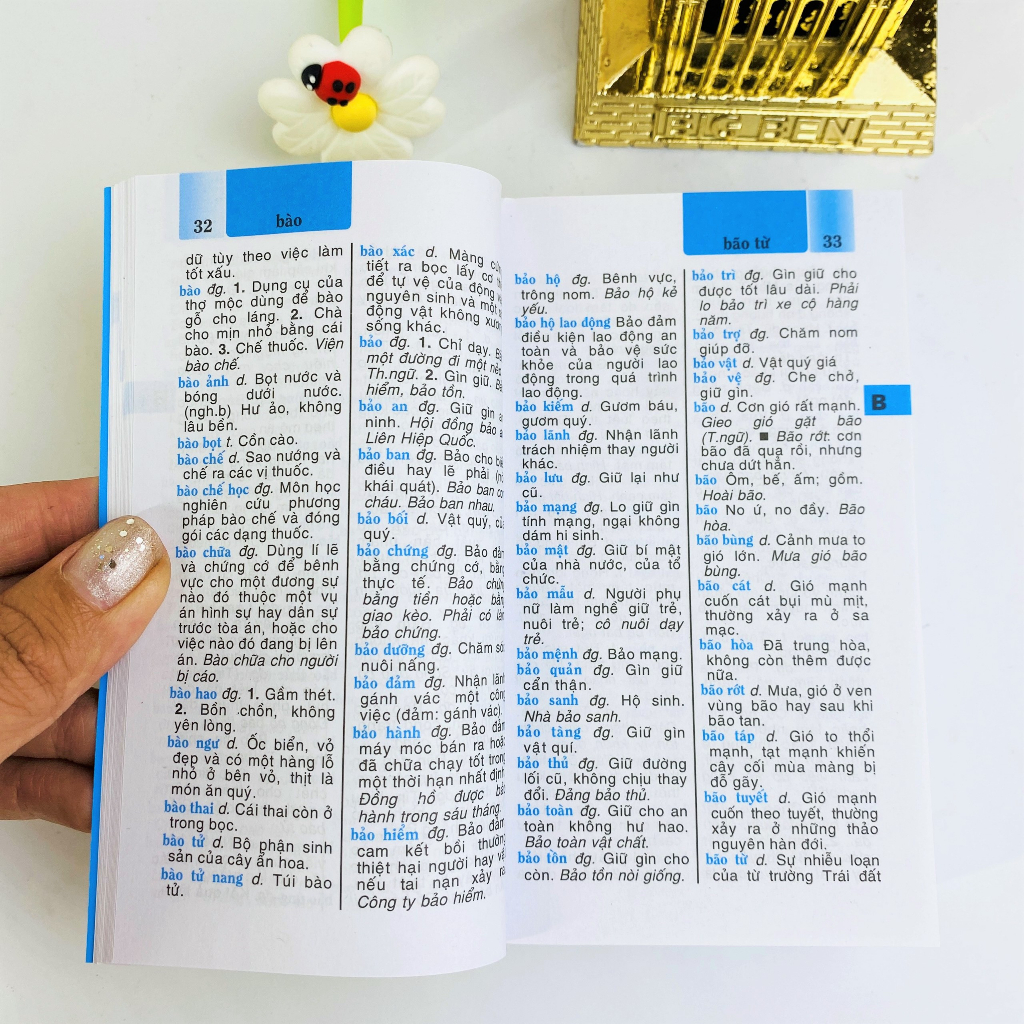 BIG BEN
32
bào
dữ tùy theo việc làm
tốt xấu.
bào đg. 1. Dụng cụ của
thợ mộc dùng để bào
gỗ cho láng. 2. Chà
cho mịn nhỏ bằng cái
bào. 3. Chế thuốc. Viện
bào chế.
bào ảnh d. Bọt nước và
bóng dưới nước.
(ngh.b) Hư ảo, không
lâu bền.
bào bọt t. Cồn cào.
bào chế d. Sao nướng và
chế ra các vị thuốc.
bào chế học đg. Môn học
nghiên cứu phương
pháp bào chế và đóng
gói các dạng thuốc.
bào chữa đg. Dùng lí lẽ
và chứng cớ để bênh
vực cho một đương sự
nào đó thuộc một vụ
án hình sự hay dân sự
trước tòa án, hoặc cho
việc nào đó đang bị lên
án. Bào chữa cho người
bị cáo.
bào hao đg. 1. Gầm thét.
2. Bồn chồn, không
yên lòng.
bào ngư d. Ốc biển, vỏ
đẹp và có một hàng lỗ
nhỏ ở bên vỏ, thịt là
món ăn quý.
bào thai d. Cái thai còn ở
trong bọc.
bào tử d. Bộ phận sinh
sản của cây ẩn hoa.
bào tử nang d. Túi bào
tử.
bào xác d. Màng
tiết ra bọc lấy cơ
để tự vệ của động
nguyên sinh và một
động vật không
sống khác.
bảo đg. 1. Chỉ dạy.
một đường đi một
Th.ngữ. 2. Gìn giữ.
hiểm, bảo tồn.
bảo an đg. Giữ gìn
ninh. Hội đồng bảo
Liên Hiệp Quốc.
bảo ban đg. Bảo cho
điều hay lẽ phải
khái quát). Bảo ban
cháu. Bảo ban nhau.
bảo bối d. Vật quý,
quý.
bảo chứng đg. Bảo
bằng chứng cớ,
thực tế. Bảo
bằng tiền hoặc
giao kèo. Phải có
bảo chứng.
bảo dưỡng đg. Chăm
nuôi nấng.
bảo đảm đg. Nhận
gánh vác một
việc (đảm: gánh vác).
bảo hành đg. Bảo
máy móc bán ra
đã chữa chạy tốt
một thời hạn nhất
Đồng hồ được
hành trong sáu tháng.
bảo hiểm đg. Bảo
cam kết bồi
thiệt hại người hay
nếu tai nạn xảy
Công ty bảo hiểm.
bão từ
33
bảo hộ đg. Bênh vực,
trông nom. Bảo hộ kẻ
yếu.
bảo hộ lao động Bảo đảm
điều kiện lao động an
toàn và bảo vệ sức
khỏe của người lao
động trong quá trình
lao động.
bảo kiếm d. Gươm báu,
gươm quý.
bảo lãnh đg. Nhận lãnh
trách nhiệm thay người
khác.
bảo lưu đg. Giữ lại như
cũ.
bảo mạng đg. Lo giữ gìn
tính mạng, ngại không
dám hi sinh.
bảo mật đg. Giữ bí mật
của nhà nước, của tổ
chức.
bảo mẫu d. Người phụ
nữ làm nghề giữ trẻ,
nuôi trẻ; cô nuôi dạy
trẻ.
bảo mệnh đg. Bảo mạng.
bảo quản đg. Gìn giữ
cẩn thận.
bảo sanh đg. Hộ sinh.
Nhà bảo sanh.
bảo tàng đg. Giữ gìn
vật quí.
bảo thủ đg. Giữ đường
lối cũ, không chịu thay
đổi. Đảng bảo thủ.
bảo toàn đg. Giữ cho an
toàn không hư hao.
Bảo toàn vật chất.
bảo tồn đg. Giữ gìn cho
còn. Bảo tồn nòi giống.
bảo trì đg. Gìn giữ cho
được tốt lâu dài. Phải
lo bảo trì xe cộ hàng
năm.
bảo trợ đg. Chăm nom
giúp đỡ.
bảo vật d. Vật quý giá
bảo vệ đg. Che chở,
giữ gìn.
bão d. Cơn gió rất mạnh.
Gieo gió gặt bão
(T.ngữ). ■ Bão rớt: cơn
bão đã qua rồi, nhưng
chưa dứt hẳn.
bão Ôm, bế, ấm; gồm.
Hoài bão.
bão No ứ, no đầy. Bão
hòa.
bão bùng d. Cảnh mưa to
gió lớn. Mưa gió bão
bùng.
bão cát d. Gió mạnh
cuốn cát bụi mù mịt,
thường xảy ra ở sa
mạc.
bão hòa Đã trung hòa,
không còn thêm được
nữa.
bão rớt d. Mưa, gió ở ven
vùng bão hay sau khi
bão tan.
bão táp d. Gió to thổi
mạnh, tạt mạnh khiến
cây cối mùa màng bị
đỗ gãy.
bão tuyết d. Gió mạnh
cuốn theo tuyết, thường
xảy ra ở những thảo
nguyên hàn đới.
bão từ d. Sự nhiễu loạn
của từ trường Trái đất
B